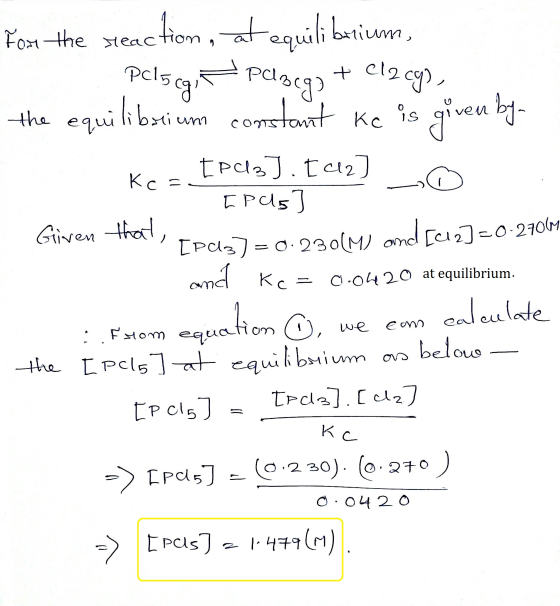 For the reaction, at equilibrium,
PCl5(g) ⇌ PCl3(g) + Cl2(g),
the equilibrium constant Kc is given by-
Kc = [PCl3].[Cl2] / [PCl5] → ①
Given that, [PCl3] = 0.230(M) and [Cl2] = 0.270(M
and Kc = 0.0420 at equilibrium.
∴ From equation ①, we can calculate
the [PCl5] at equilibrium as below —
[PCl5] = [PCl3].[Cl2] / Kc
=> [PCl5] = (0.230).(0.270) / 0.0420
=> [PCl5] = 1.479(M).